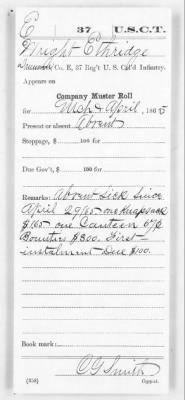 E 37 U.S.C.T.
Wright Ethridge
Co. E, 37 Reg't U. S. Col'd Infantry.
Appears on
Company Muster Roll
for Mch & April, 1865
Present or absent Absent
Stoppage, $ 100 for
Due Gov't, $ 100 for
Remarks: Absent sick since
April 29/65 - one Knapsack
$1 65 - one Canteen 67¢
Bounties $300. First -
instalment Due $100.
Book mark:
O G Smith
(358) Copyist.